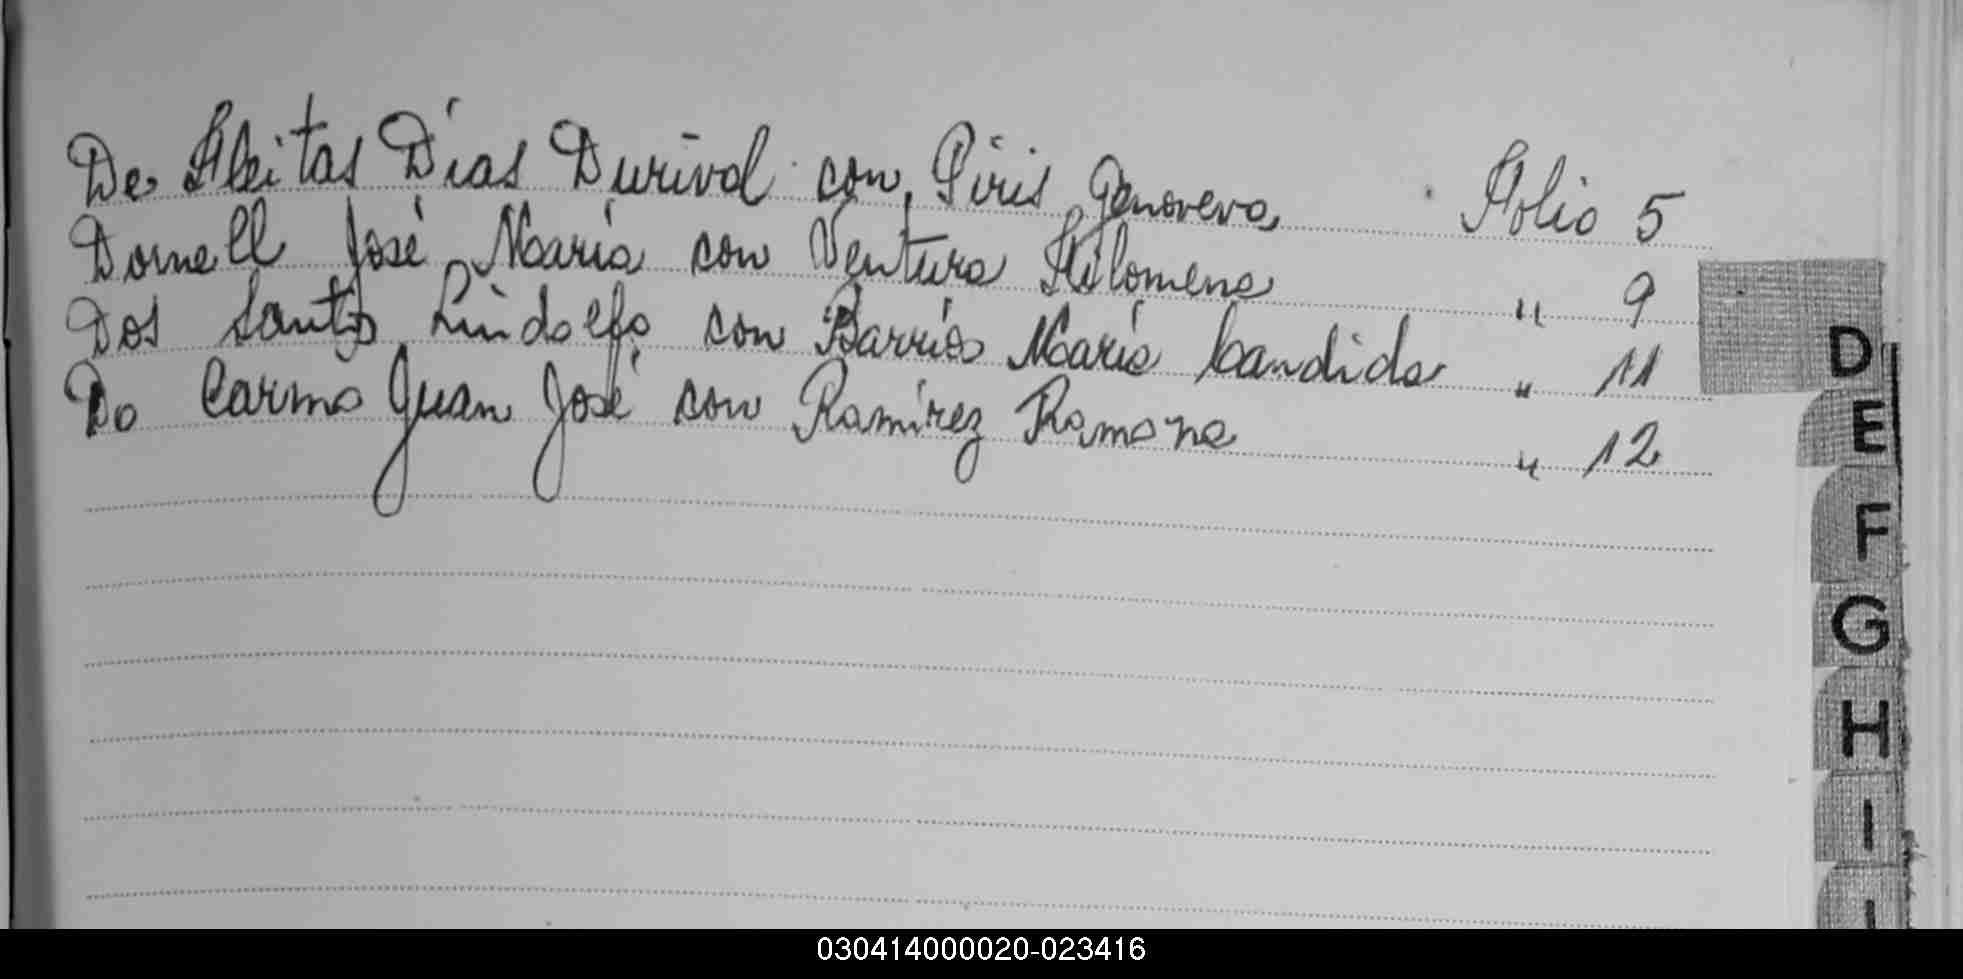 De Fleitas Dias Durival con Piris Genoveva Folio 5
Dornell José María con Ventura Filomena " 9
Dos Santos Lindolfo con Barrios María Candida " 11
Do Carmo Juan José con Ramírez Ramona " 12
D
E
F
G
H
I
030414000020-023416